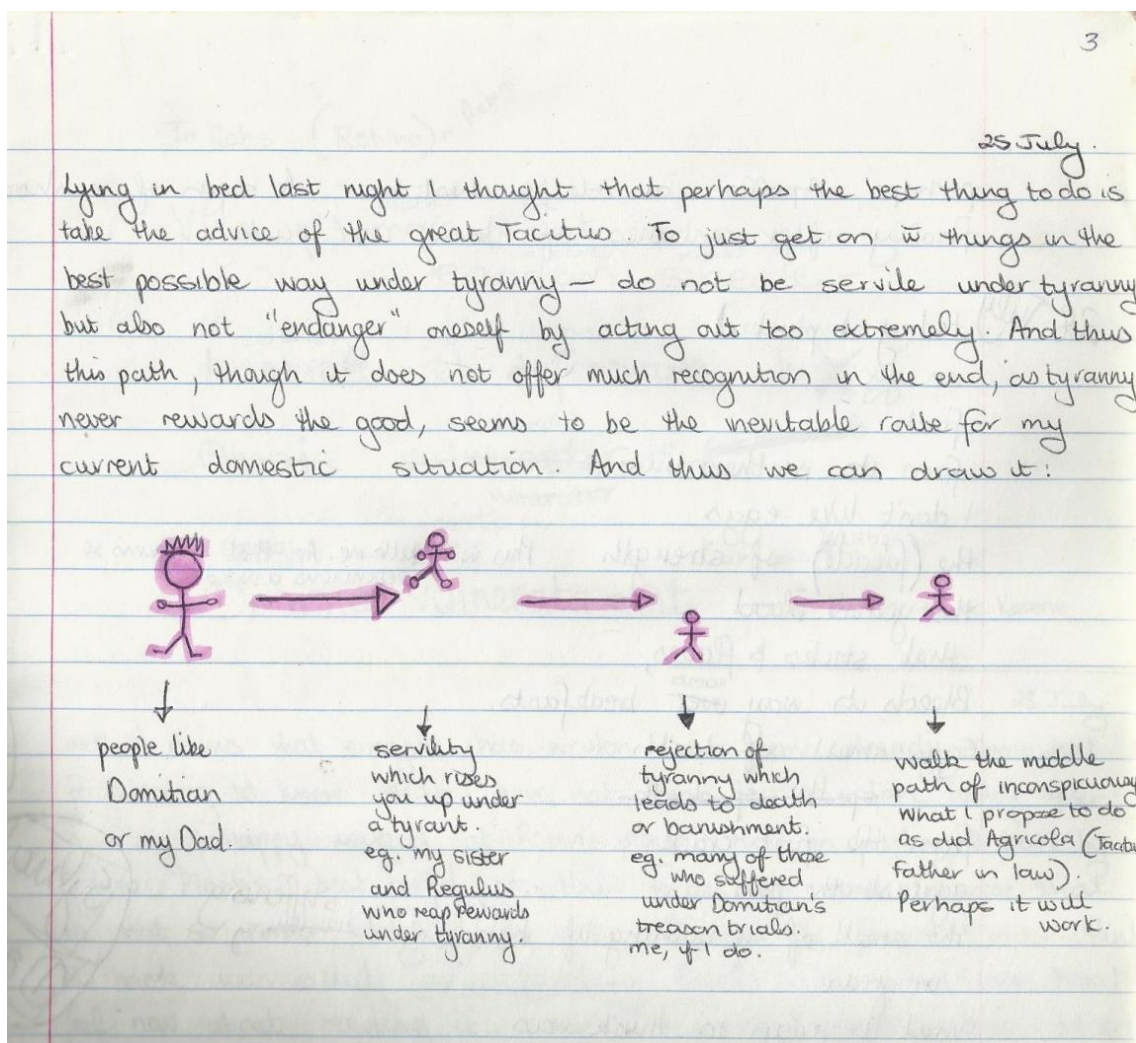 3
25 July.
Lying in bed last night I thought that perhaps the best thing to do is
take the advice of the great Tacitus. To just get on w̄ things in the
best possible way under tyranny — do not be servile under tyranny
but also not "endanger" oneself by acting out too extremely. And thus
this path, though it does not offer much recognition in the end, as tyranny
never rewards the good, seems to be the inevitable route for my
current domestic situation. And thus we can draw it:
people like
Domitian
or my Dad.
servility
which rises
you up under
a tyrant.
eg. my sister
and Regulus
who reap rewards
under tyranny.
rejection of
tyranny which
leads to death
or banishment.
eg. many of those
who suffered
under Domitian's
treason trials.
me, if I do.
walk the middle
path of
what I propose to do
as did Agricola (Tacitus
father in law).
Perhaps it will
work.